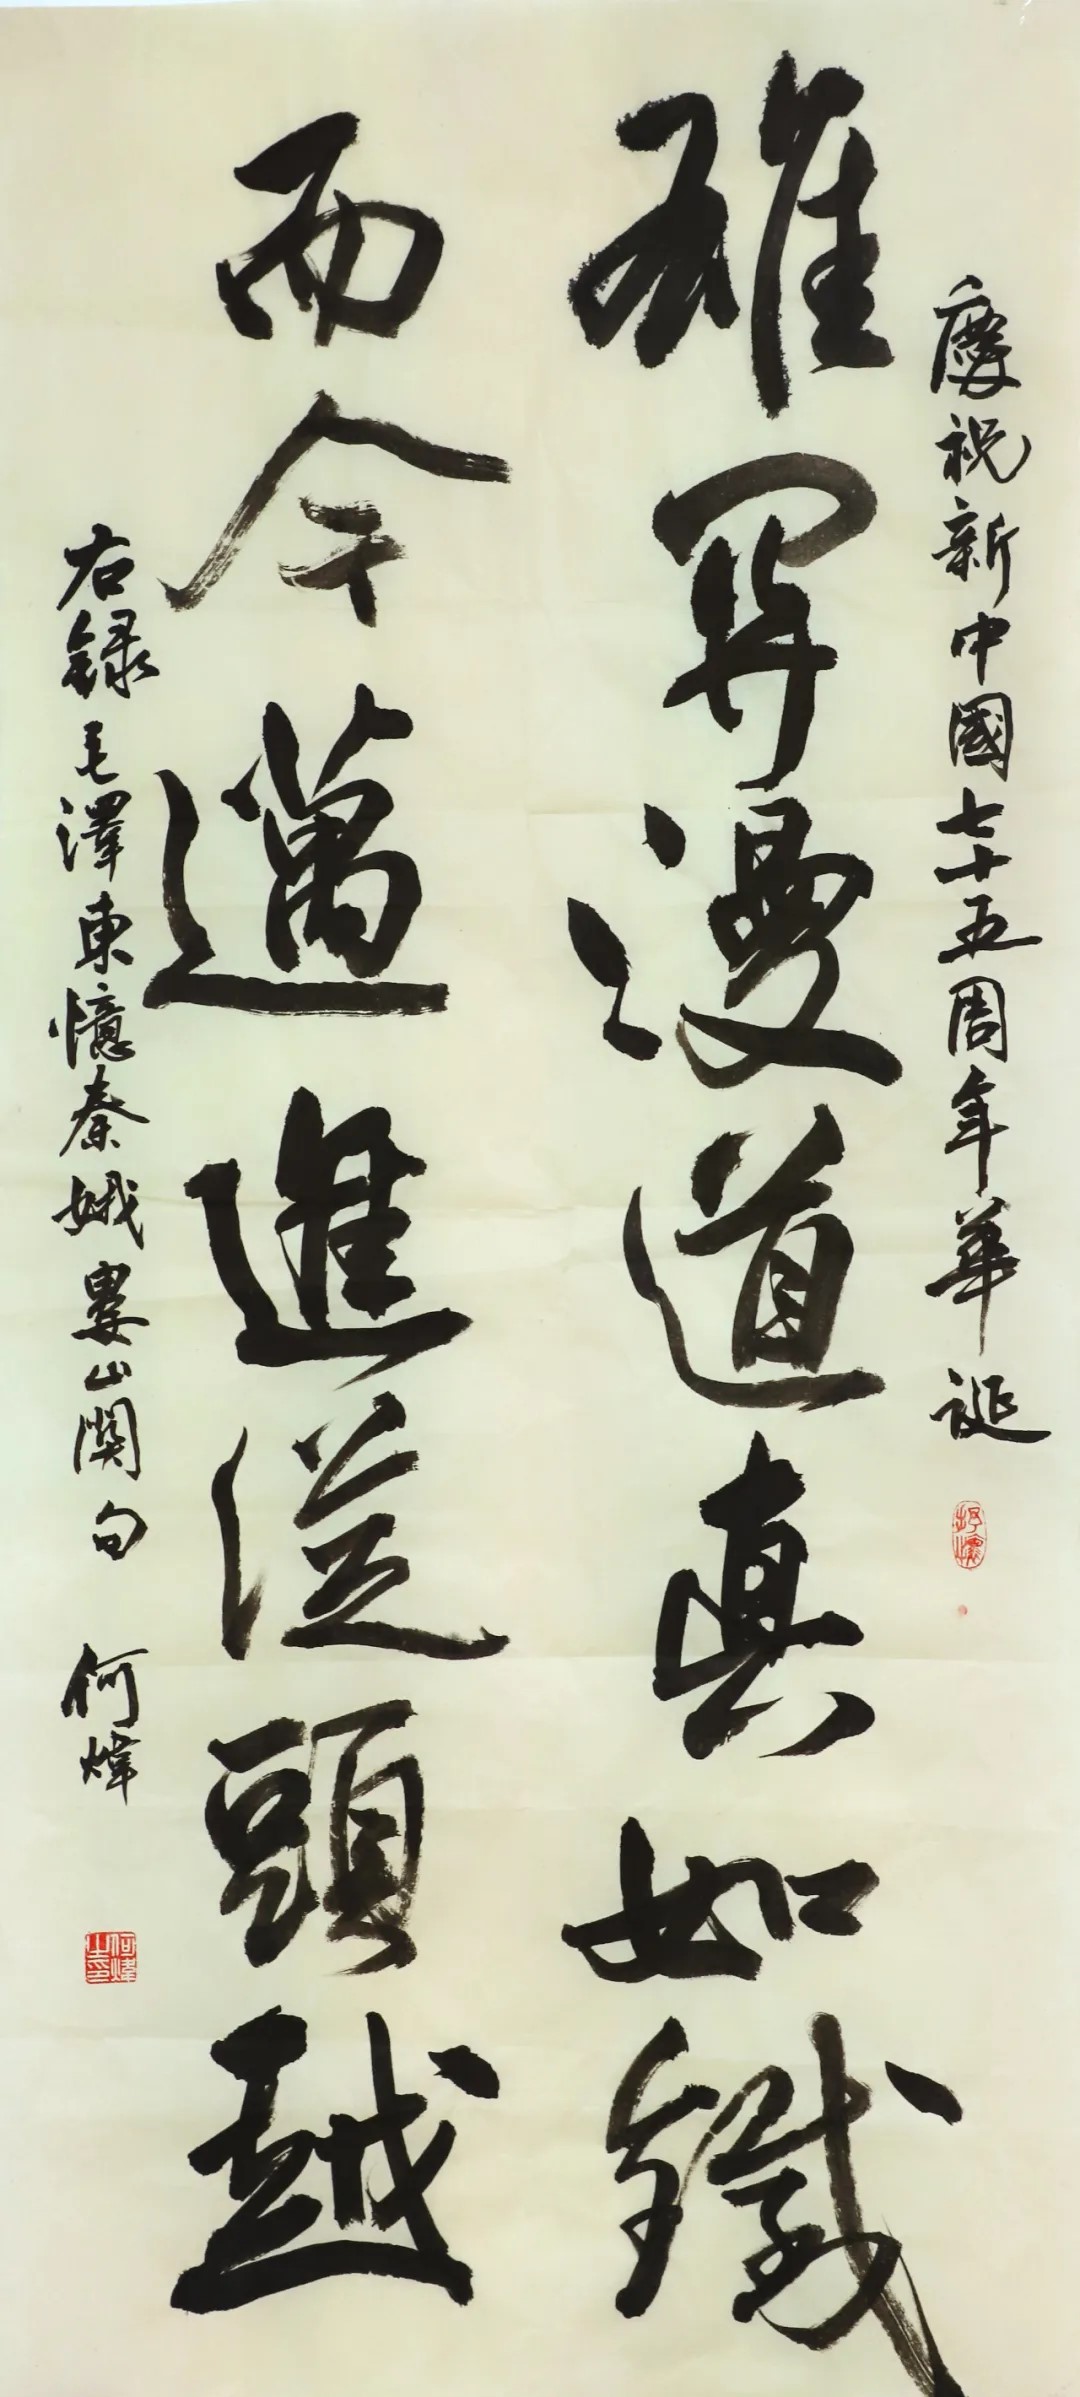 慶祝新中國七十五周年華誕
雄關漫道真如鐵
而今邁進從頭越
右録毛澤東憶秦娥婁山関句 何煒
何煒之印